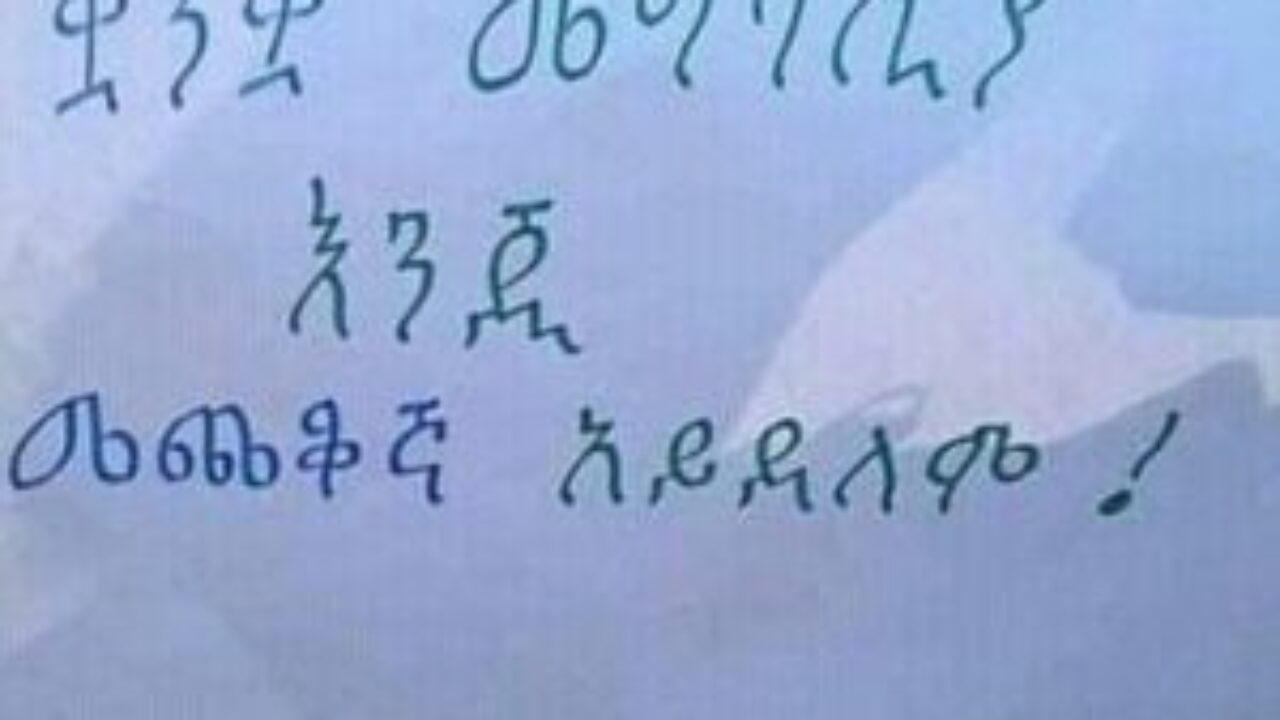 ቋንቋ መግባቢያ
እንጂ
መጨቆኛ አይደለም!